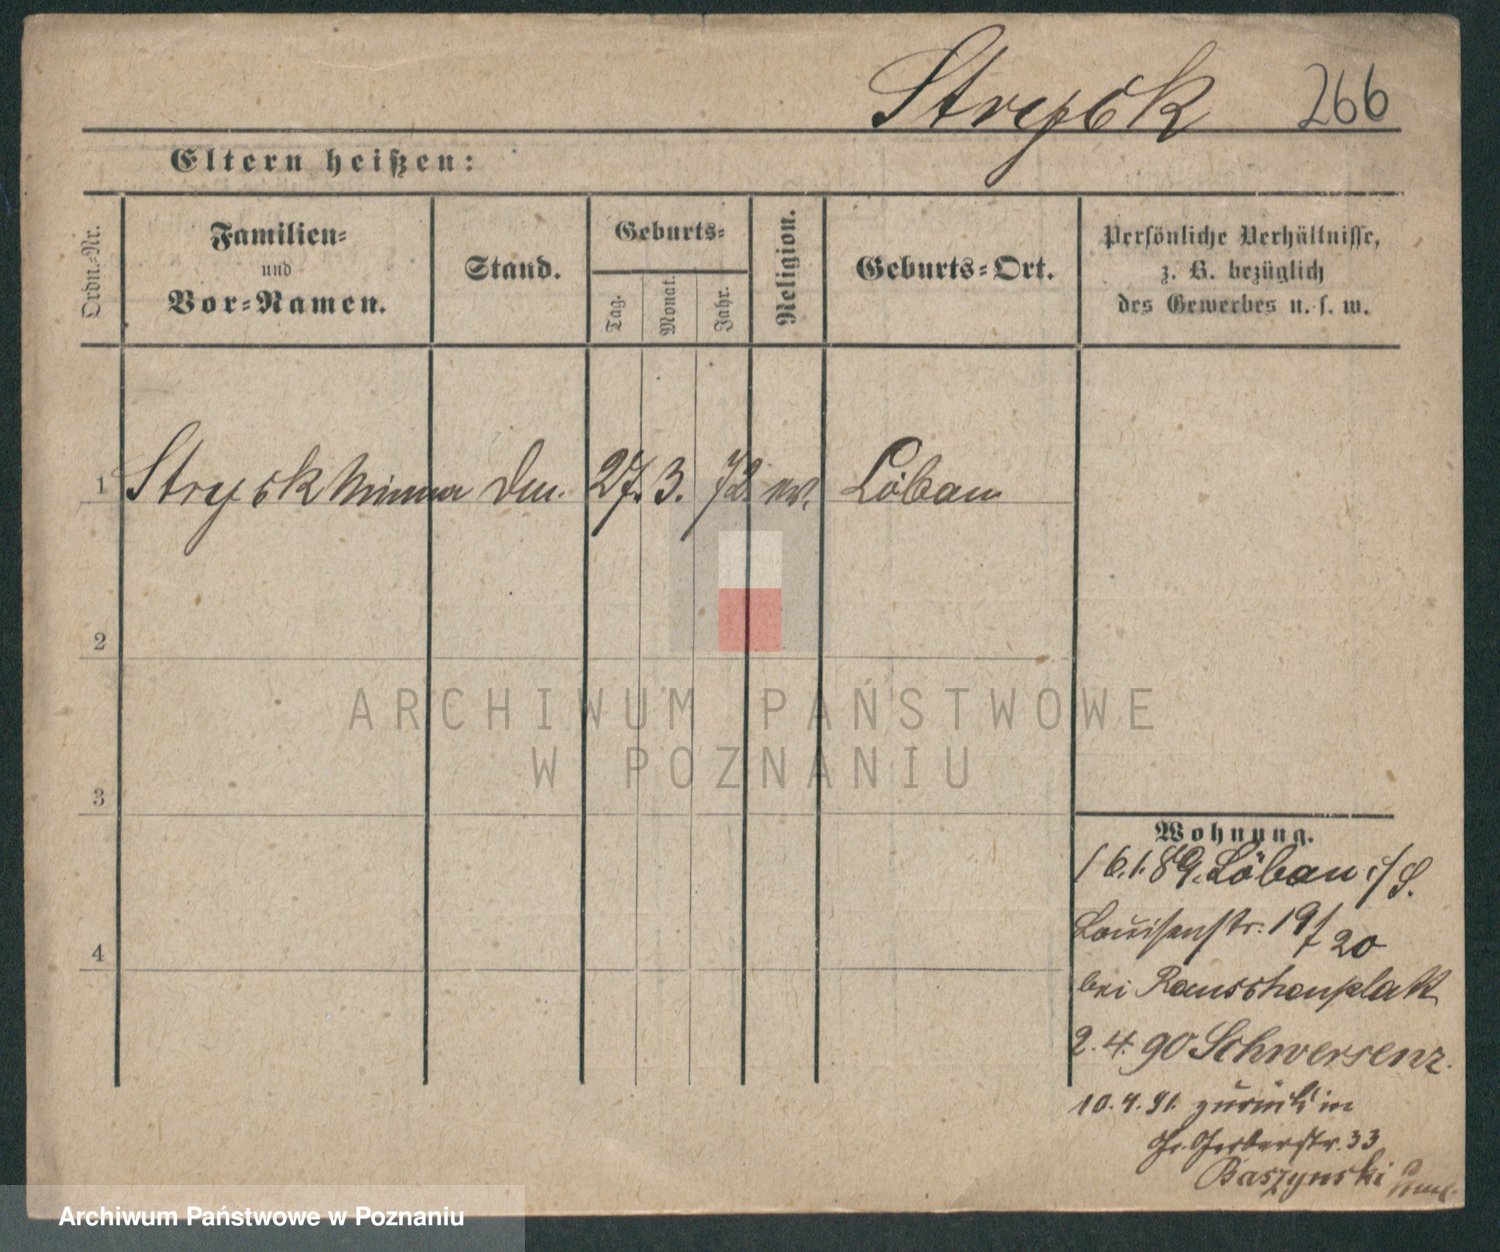 Stryck 266
Eltern heißen:
Ordn.-Nr.
Familien-
und
Vor-Namen.
Stand.
Geburts-
Tag.
Monat.
Jahr.
Religion.
Geburts-Ort.
Persönliche Verhältnisse,
z. B. bezüglich
des Gewerbes u. s. w.
1 Strysk Minna 27. 3. 72. ev. Löbau
2
3
4
Wohnung.
16.1.89. Löbau i/S.
Louisenstr. 19/20
bei
2.4.90 Schwersenz.
10.4.91. zurück in
Gr. Gerberstr. 33
Baszynski
ARCHIWUM PAŃSTWOWE
W POZNANIU
Archiwum Państwowe w Poznaniu